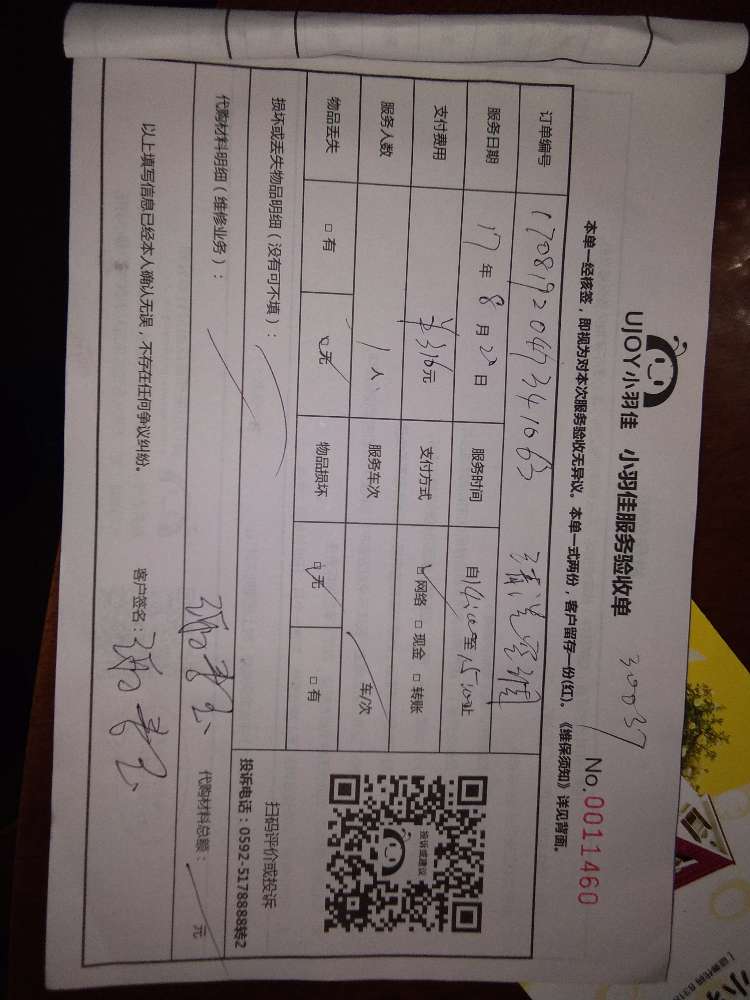 UJOY小羽佳 小羽佳服务验收单
30037
No.0011460
本单一经核签，即视为对本次服务验收无异议。本单一式两份，客户留存一份(红)。《维保须知》详见背面。
订单编号
服务日期 17年8月20日 服务时间 自14:00至15:00止
支付费用 ¥316元 支付方式 ☑网络 □现金 □转账
服务人数 1人 服务车次 车/次
物品丢失 □有 ☑无 物品损坏 ☑无 □有
损坏或丢失物品明细（没有可不填）：
代购材料明细（维修业务）：
代购材料总额： 元
投诉或建议
扫码评价或投诉
投诉电话：0592-5178888转2
以上填写信息已经本人确认无误，不存在任何争议纠纷。 客户签名：